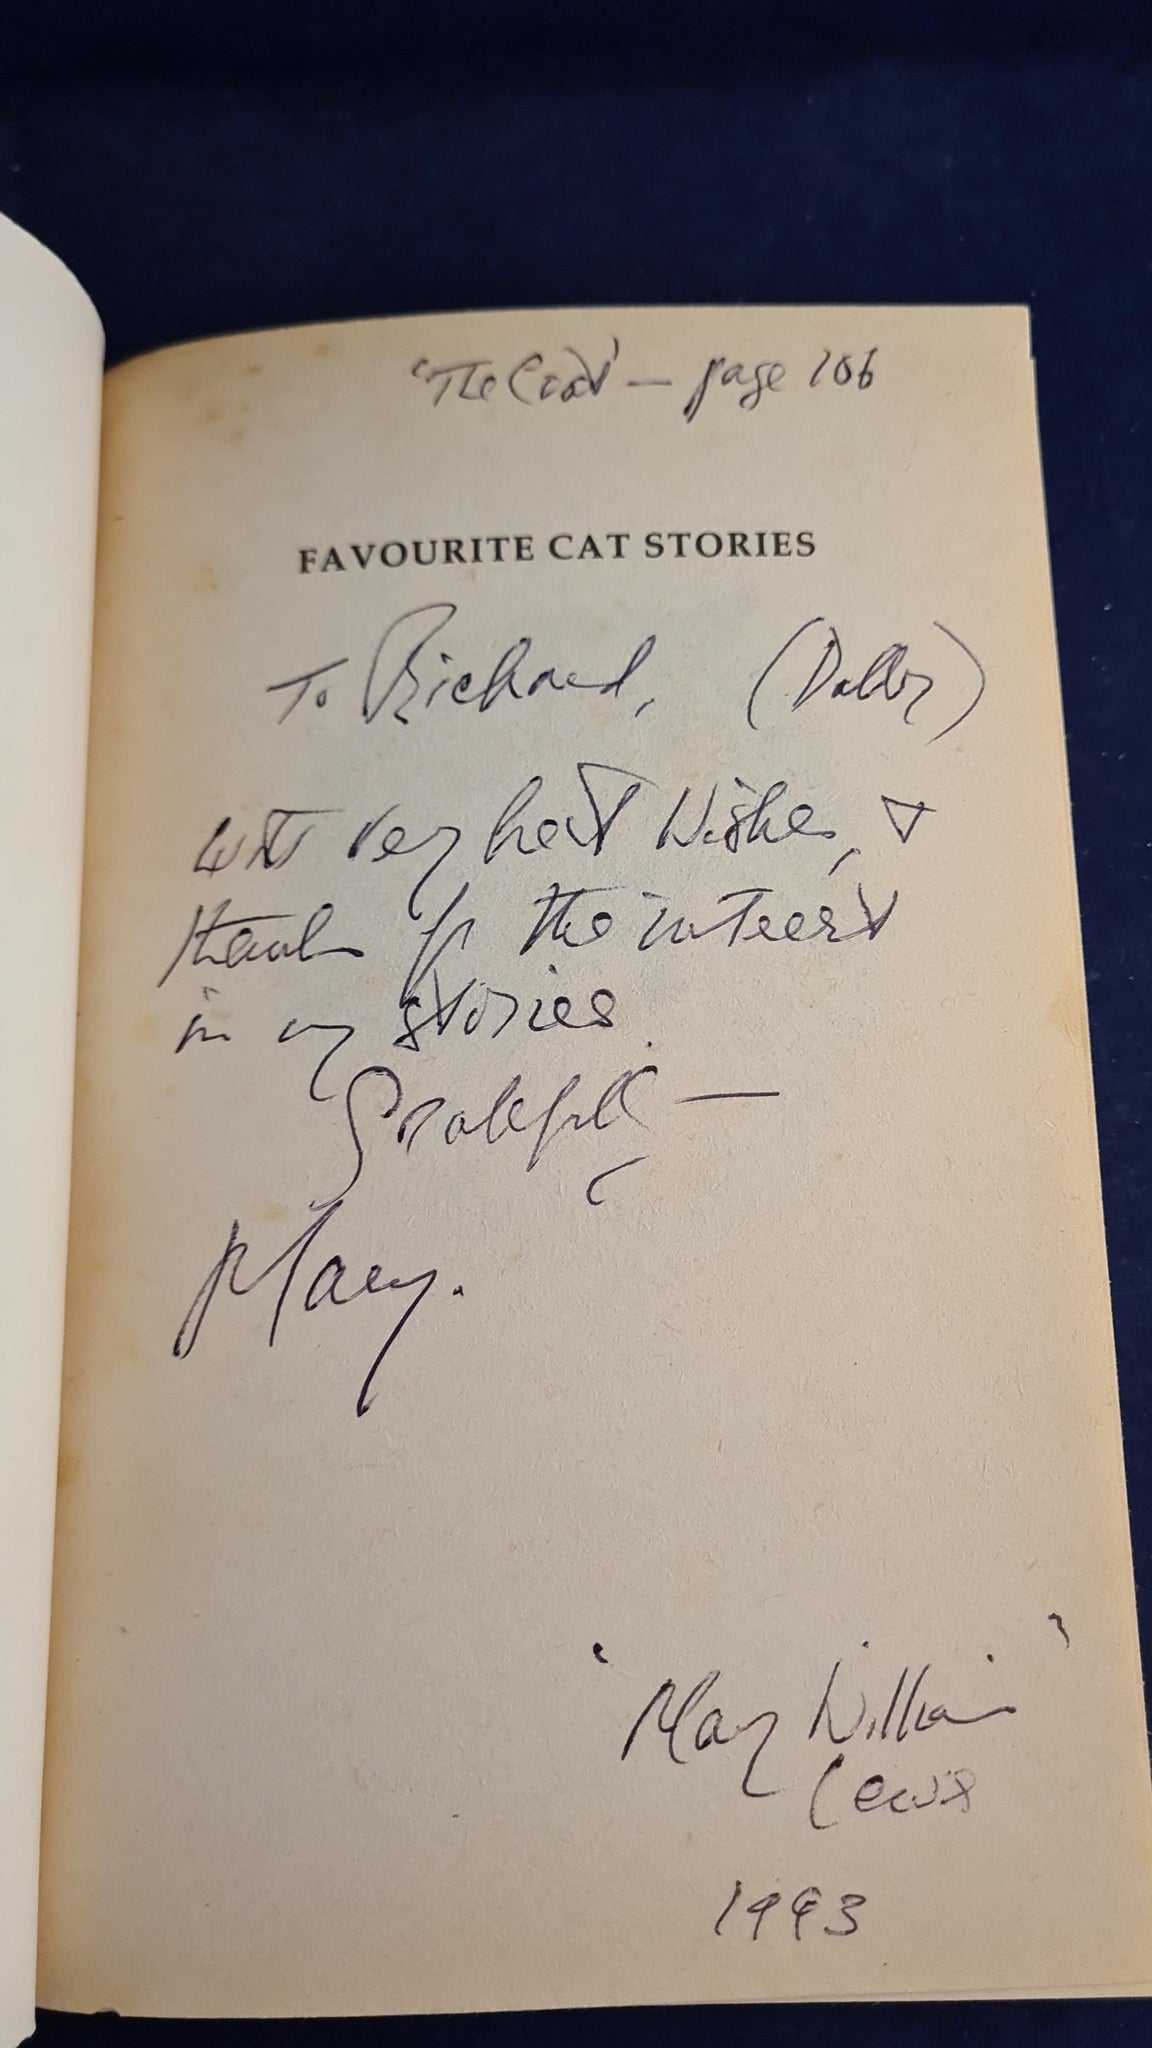 'The Coat' — page 106
FAVOURITE CAT STORIES
To Richard, (Dalby)
with very best Wishes, &
thanks for the interest
in my stories.
Gratefully —
Mary.
'Mary William
Lewis'
1993